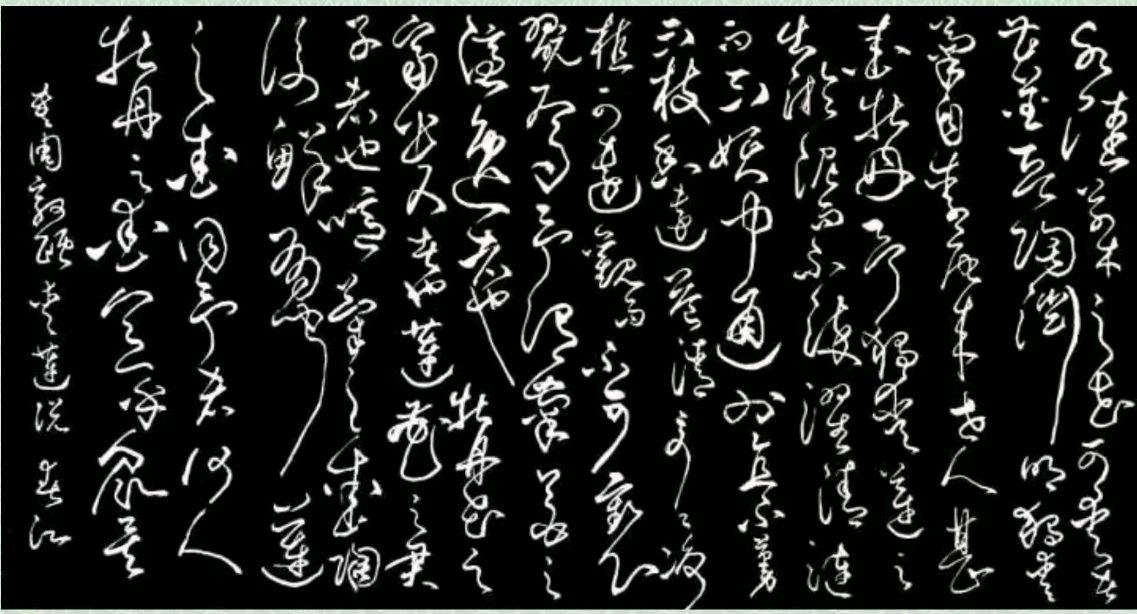 水陸草木之花可愛者
甚蕃晉陶淵明獨愛
菊自李唐來世人甚
愛牡丹予獨愛蓮之
出淤泥而不染濯清漣
而不妖中通外直不蔓
不枝香遠益清亭亭淨
植可遠觀而不可褻
翫焉予謂菊花之
隱逸者也牡丹花之
富貴者也蓮花之君
子者也噫菊之愛陶
後鮮有聞蓮
之愛同予者何人
牡丹之愛宜乎眾矣
周敦頤愛蓮說